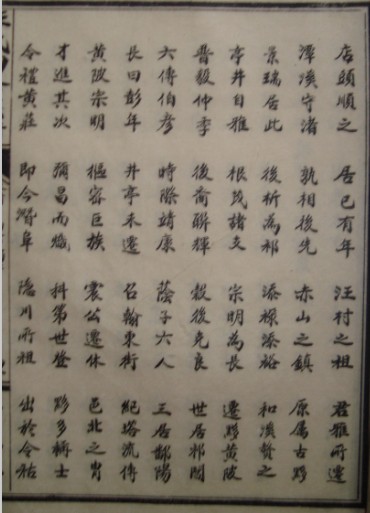 店頭順之 居已有年 汪村之祖 君雅所遷
潭溪守渚 孰相後先 赤山之鎮 原属古黟
景瑞居此 後析為祁 添祿添裕 和溪贊之
亭井自雅 根茂諸支 宗明為長 遷黟黄陂
晋毅仲季 後裔聯輝 毅後克良 世居祁閶
六傳伯彦 時際靖康 蔭子六人 三居鄱陽
長曰彭年 井亭未遷 召翰東街 紀塔流傳
黄陂宗明 樞密巨族 震公遷休 邑北之胄
才進其次 彌昌而熾 科第世登 黟多稱士
令禮黄莊 即今潛阜 隱川所祖 出於令祜